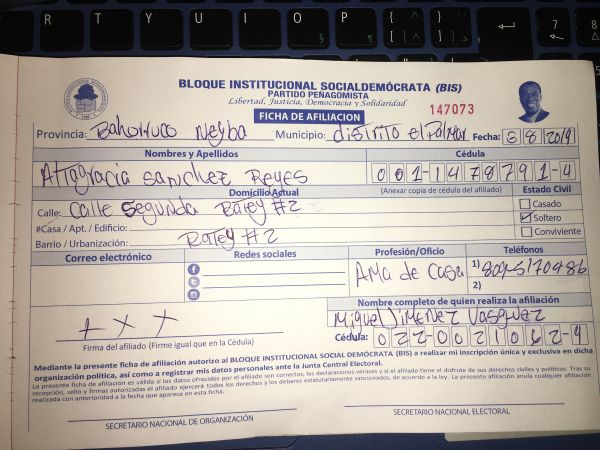 BLOQUE INSTITUCIONAL SOCIALDEMÓCRATA (BIS)
PARTIDO PEÑAGOMISTA
Libertad, Justicia, Democracia y Solidaridad
FICHA DE AFILIACION
147073
Provincia: Bahoruco Neyba Municipio: distrito el Palmar Fecha: 6 8 2019
Nombres y Apellidos Cédula
Altagracia Sanchez Reyes 001-1478791-4
Domicilio Actual (Anexar copia de cédula del afiliado) Estado Civil
Calle: Calle Segunda Batey #2 Casado
#Casa / Apt. / Edificio: Soltero
Barrio / Urbanización: Batey #2 Conviviente
Correo electrónico Redes sociales Profesión/Oficio Teléfonos
Ama de Casa 1) 809-5170486
2)
Nombre completo de quien realiza la afiliación
Miguel Jimenez Vasquez
+ + +
Cédula: 022-0021062-4
Firma del afiliado (Firme igual que en la Cédula)
Mediante la presente ficha de afiliación autorizo al BLOQUE INSTITUCIONAL SOCIAL DEMÓCRATA (BIS) a realizar mi inscripción única y exclusiva en dicha
organización política, así como a registrar mis datos personales ante la Junta Central Electoral.
La presente ficha de afiliación es válida si los datos ofrecidos por el afiliado son correctos, las declaraciones veraces y si el afiliado tiene el disfrute de sus derechos civiles y políticos. Tras su
recepción, sello y firmas autorizadas el afiliado ejercerá todos los derechos y los deberes estatutariamente sancionados, de acuerdo a la ley. La presente afiliación anula cualquier afiliación
realizada con anterioridad a la fecha que aparece en esta ficha.
SECRETARIO NACIONAL DE ORGANIZACIÓN SECRETARIO NACIONAL ELECTORAL